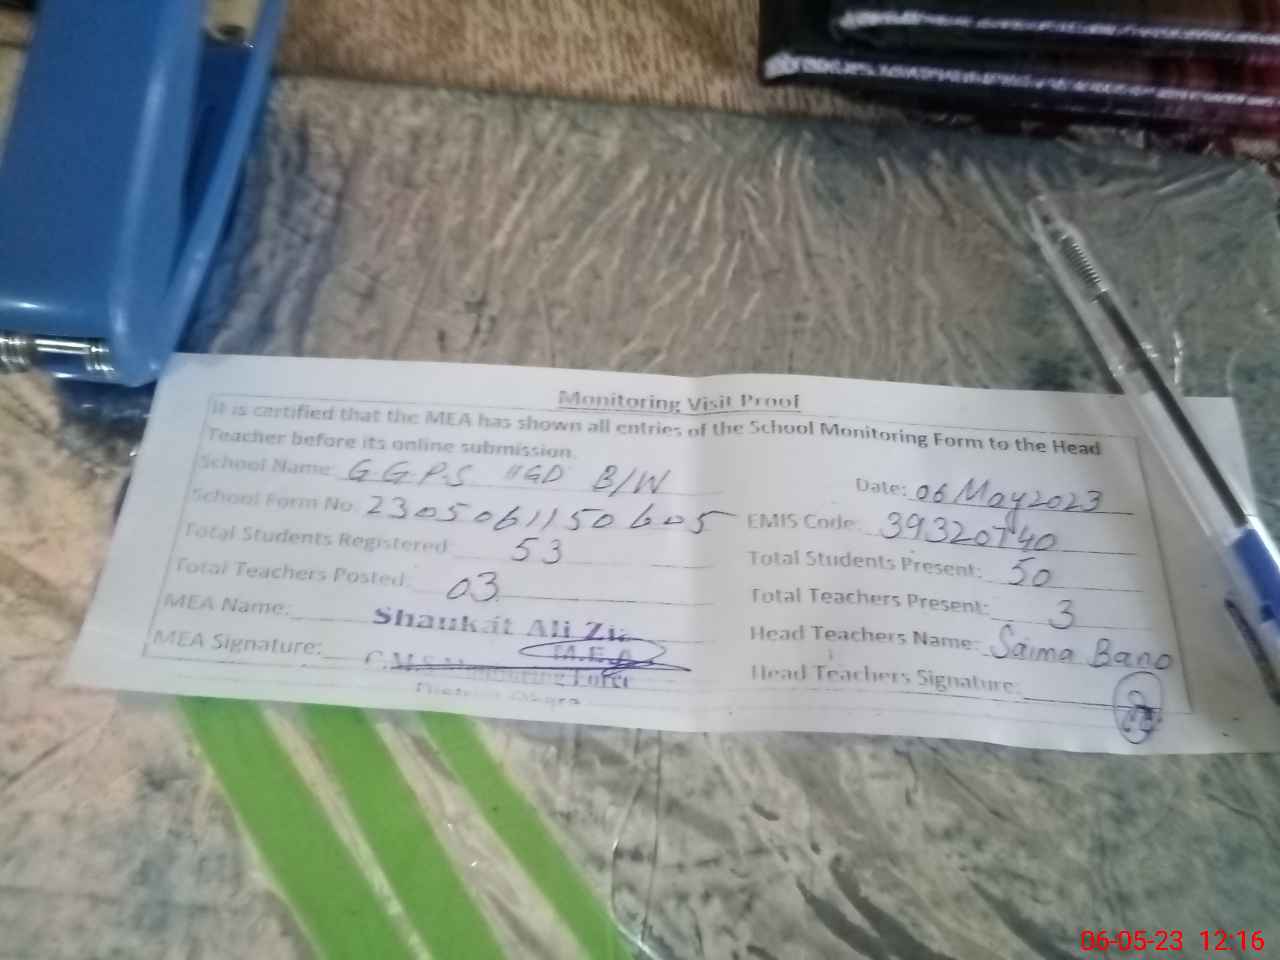 Monitoring Visit Proof
It is certified that the MEA has shown all entries of the School Monitoring Form to the Head
Teacher before its online submission.
School Name: G.G.P.S 11GD B/W Date: 06 May 2023
School Form No. 2305061150605 EMIS Code:
Total Students Registered 53 Total Students Present: 50
Total Teachers Posted: 03 Total Teachers Present: 3
MEA Name: Shaukat Ali Head Teachers Name: Saima Bano
MEA Signature: M.E.A Head Teachers Signature:
Monitoring Force
District
06-05-23 12:16